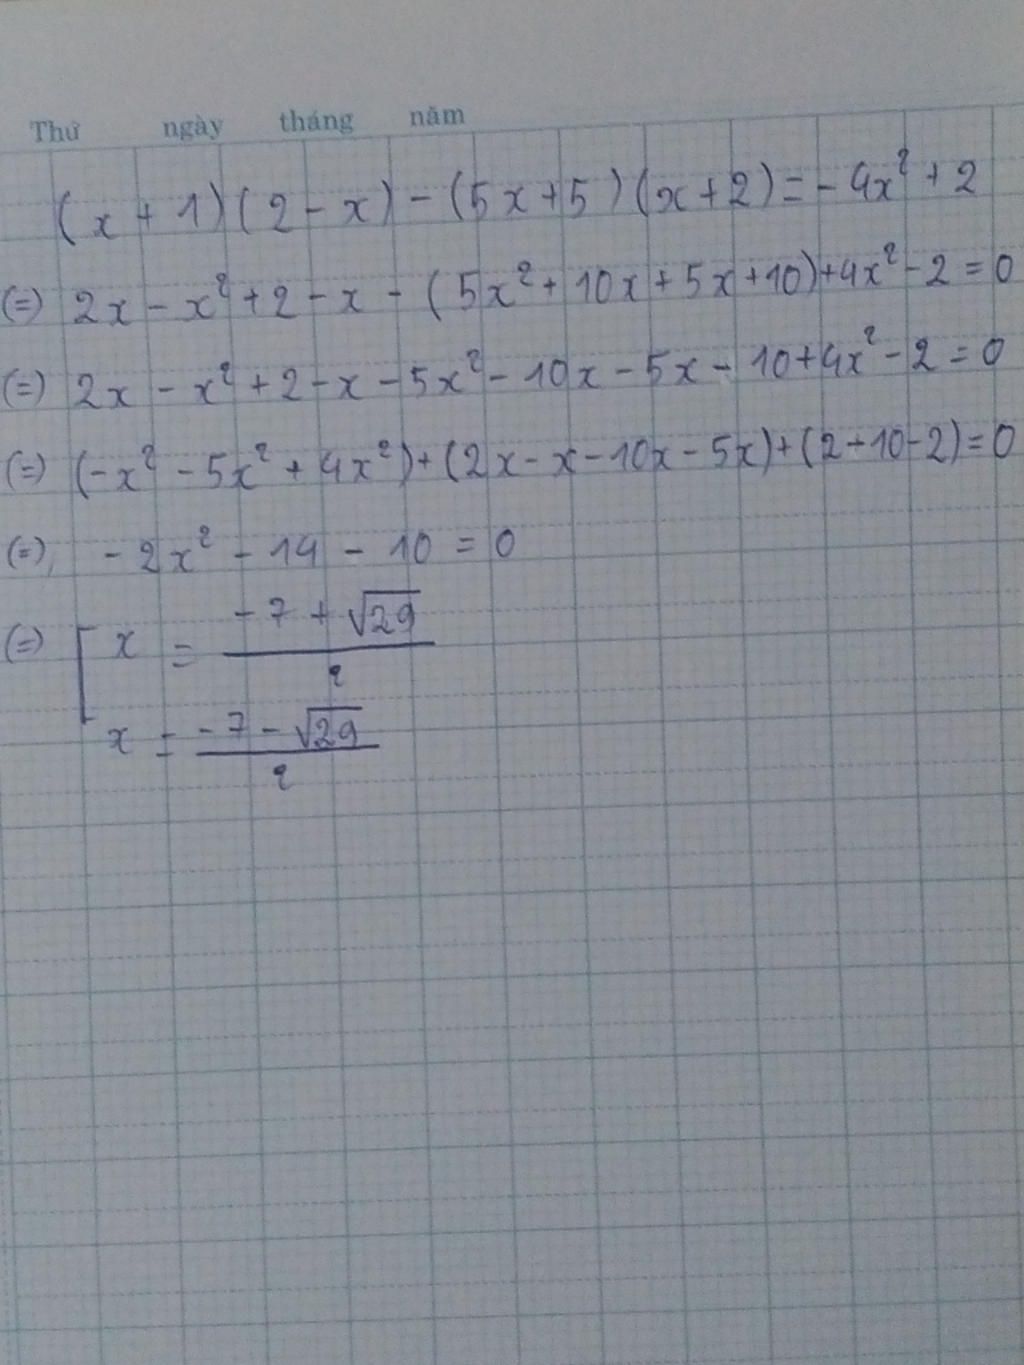 Thứ ngày tháng năm
(x + 1)(2 - x) - (5x + 5)(x + 2) = - 4x² + 2
(=) 2x - x² + 2 - x - (5x² + 10x + 5x + 10) + 4x² - 2 = 0
(=) 2x - x² + 2 - x - 5x² - 10x - 5x - 10 + 4x² - 2 = 0
(=) (-x² - 5x² + 4x²) + (2x - x - 10x - 5x) + (2 - 10 - 2) = 0
(=) - 2x² - 14 - 10 = 0
(=) [ x = (-7 + √29)/2
x = (-7 - √29)/2